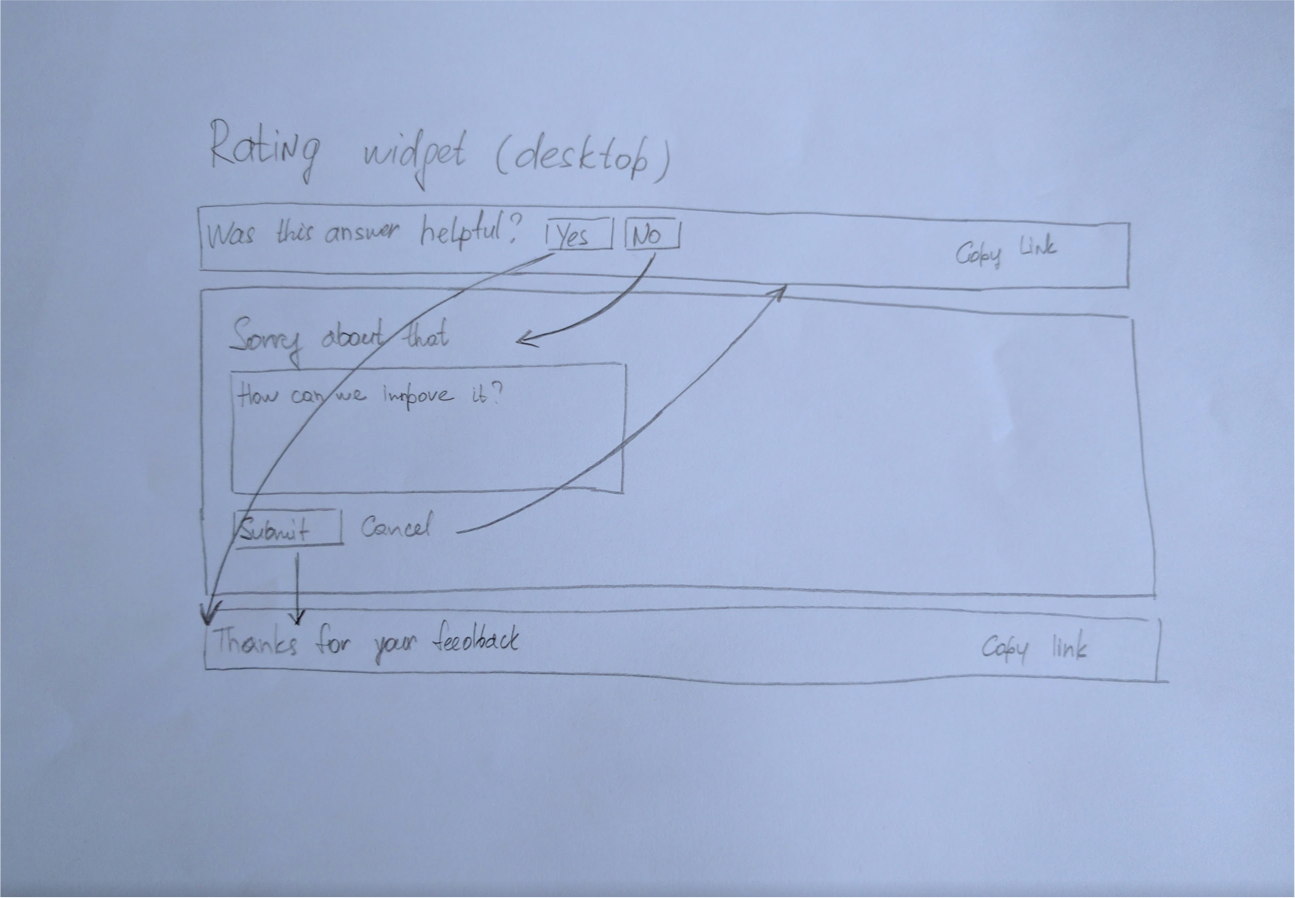 Rating widget (desktop)
Was this answer helpful? Yes No Copy link
Sorry about that
How can we impove it?
Submit Cancel
Thanks for your feedback Copy link